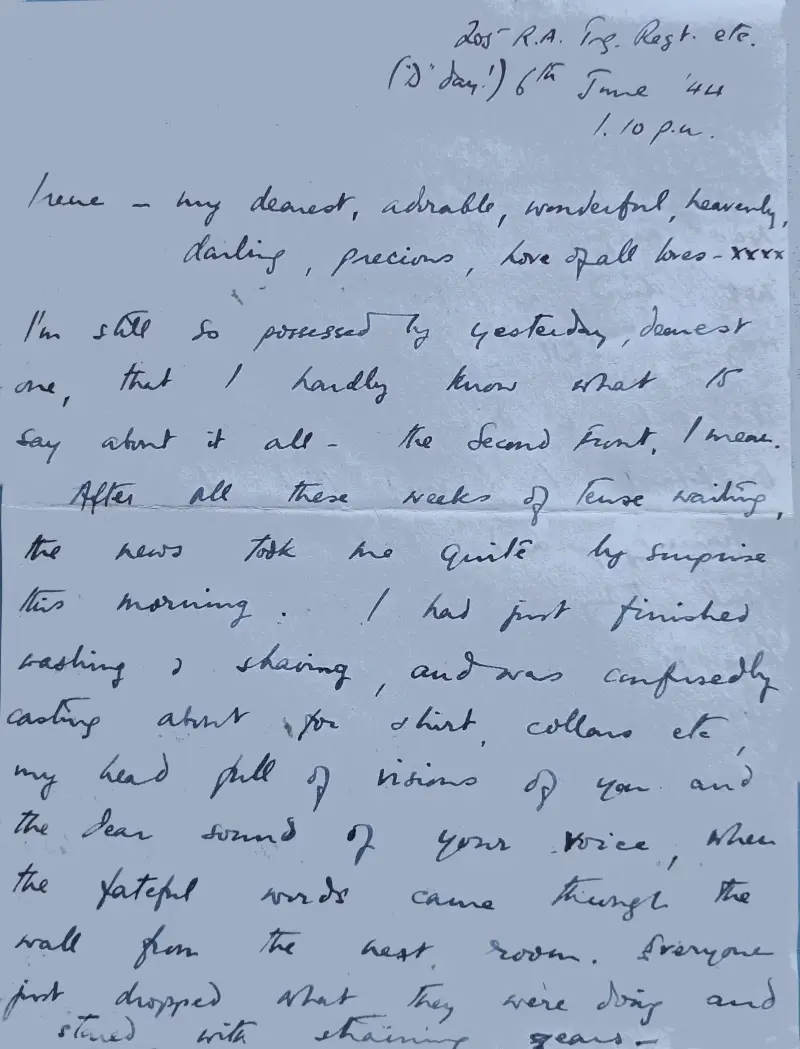 205 R.A. Trg. Regt. etc.
("D" day!) 6th June '44
1.10 p.m.
Irene – my dearest, adorable, wonderful, heavenly,
darling, precious, love of all loves – xxxx
I'm still so possessed by yesterday, dearest
one, that I hardly know what to
say about it all – the Second Front, I mean.
After all these weeks of tense waiting,
the news took me quite by surprise
this morning. I had just finished
washing & shaving, and was confusedly
casting about for shirt, collars etc,
my head full of visions of you and
the dear sound of your voice, when
the fateful words came through the
wall from the next room. Everyone
just dropped what they were doing and
stared with straining years –